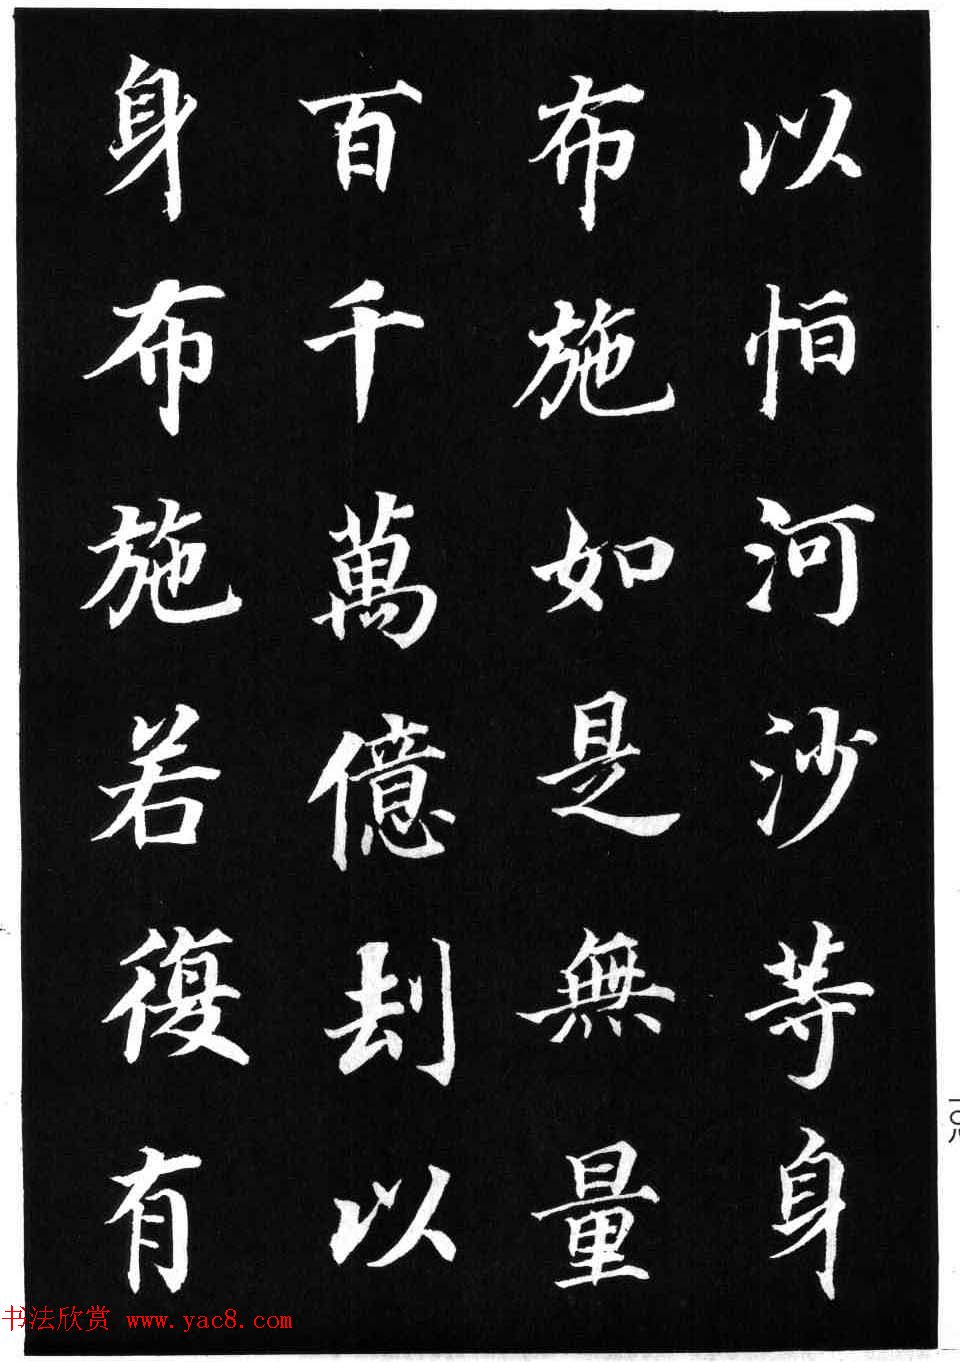 以恒河沙等身
布施如是無量
百千萬億刧以
身布施若復有
一〇八
书法欣赏 www.yac8.com